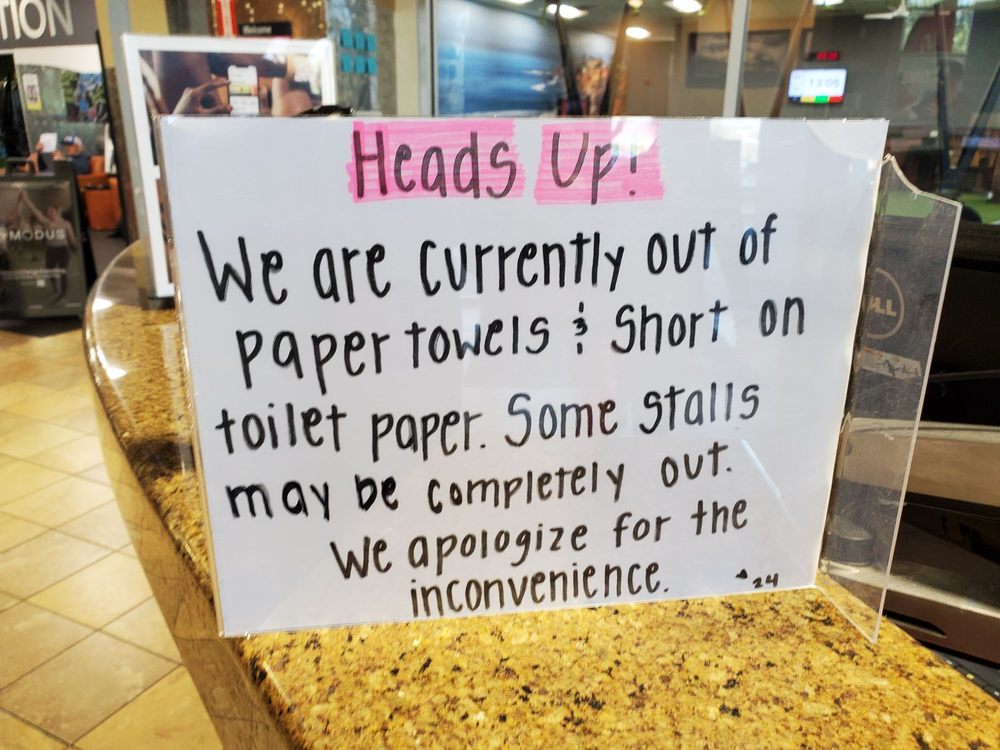 TION
Welcome
13:05
MODUS
DELL
Heads Up!
We are currently out of
paper towels & Short on
toilet paper. Some stalls
may be completely out.
We apologize for the
inconvenience.
24